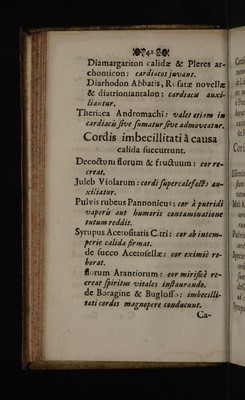 42
Diamargariton calidæ & Pleres ar-
chonticon: cardiacos juvant.
Diarhodon Abbatis, Rosatæ novellæ
& diatrionsantalon: cardiacis auxi-
liantur.
Theriaca Andromachi: valet etiam in
cardiacis sive sumatur sive admoveatur.
Cordis imbecillitati à causa
calida succurrunt.
Decoctum florum & fructuum: cor re-
creat.
Juleb Violarum: cordi supercalefacto au-
xiliatur.
Pulvis rubeus Pannonicus: cor à putridi
vaporis aut humoris contaminatione
tutum reddit.
Syrupus Acetositatis Citri: cor ab intem-
perie calida firmat.
de succo Acetosellæ: cor eximiè ro-
borat.
florum Arantiorum: cor mirificè re-
creat spiritus vitales instaurando.
de Boragine & Buglosso: imbecilli-
tati cordis magnopere conducunt.
Ca-